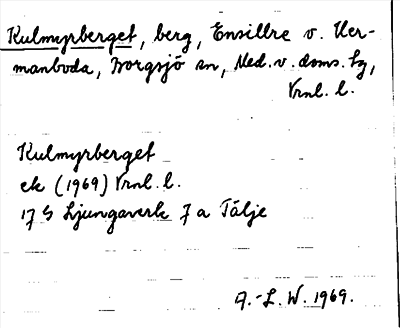 Kulmyrberget, berg, Ensillre v. Her-
manboda, Borgsjö sn, Med.v. doms. tg,
Vrnl. l.
Kulmyrberget
ek (1969) Vrnl. l.
17 G Ljungaverk 7 a Tälje
A.-L. W. 1969.